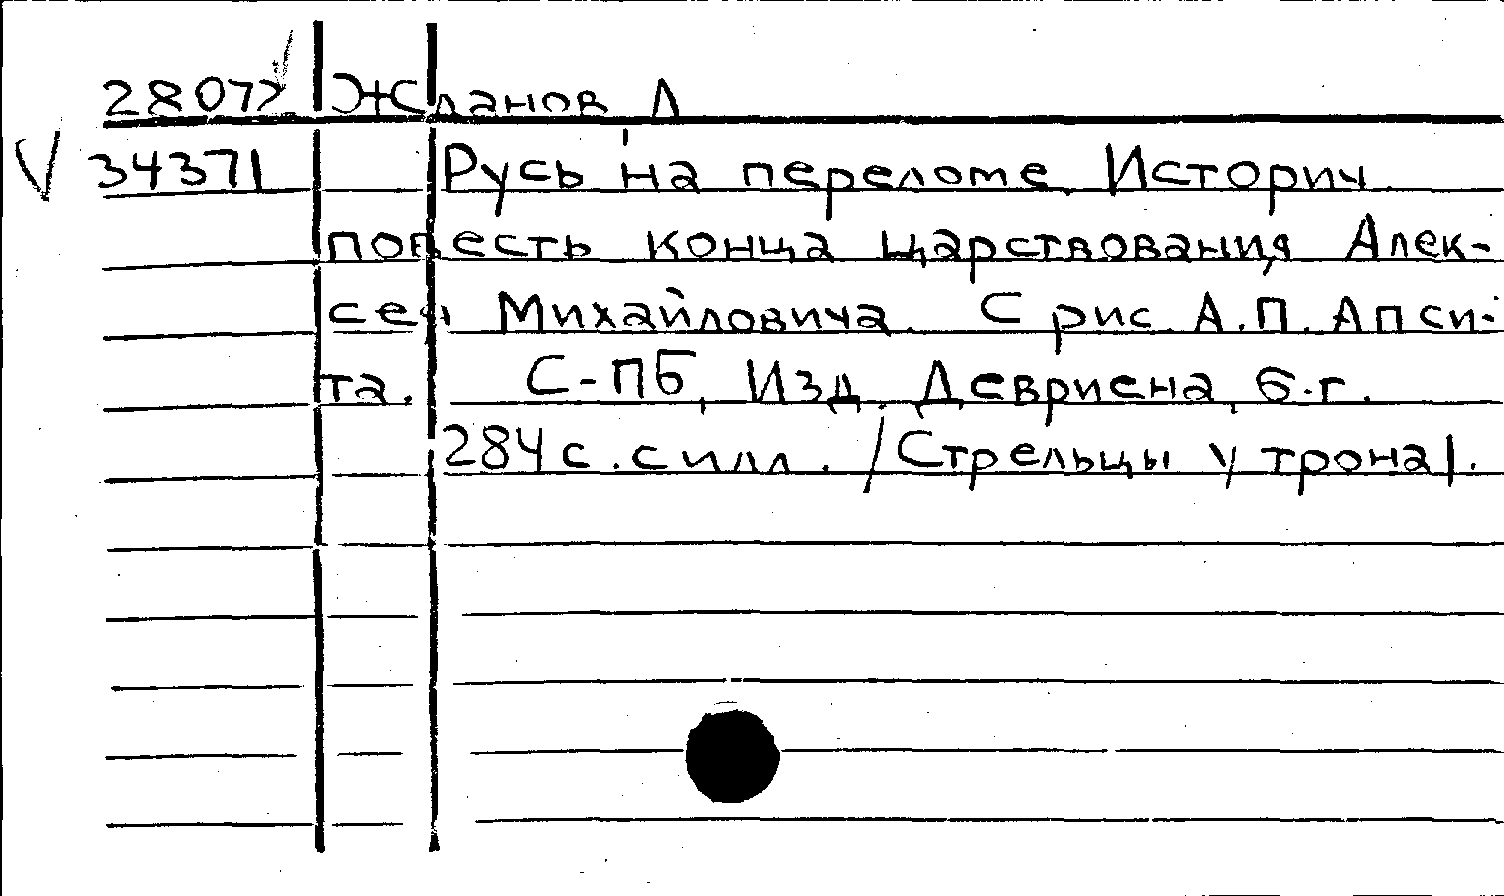 28077 Жданов Л
34371 Русь на переломе. Историч.
повесть конца царствования Алек-
сея Михайловича. С рис. А.П. Апси-
та. С-ПБ, Изд. Девриена, б.г.
284 с. с илл. /Стрельцы у трона/.